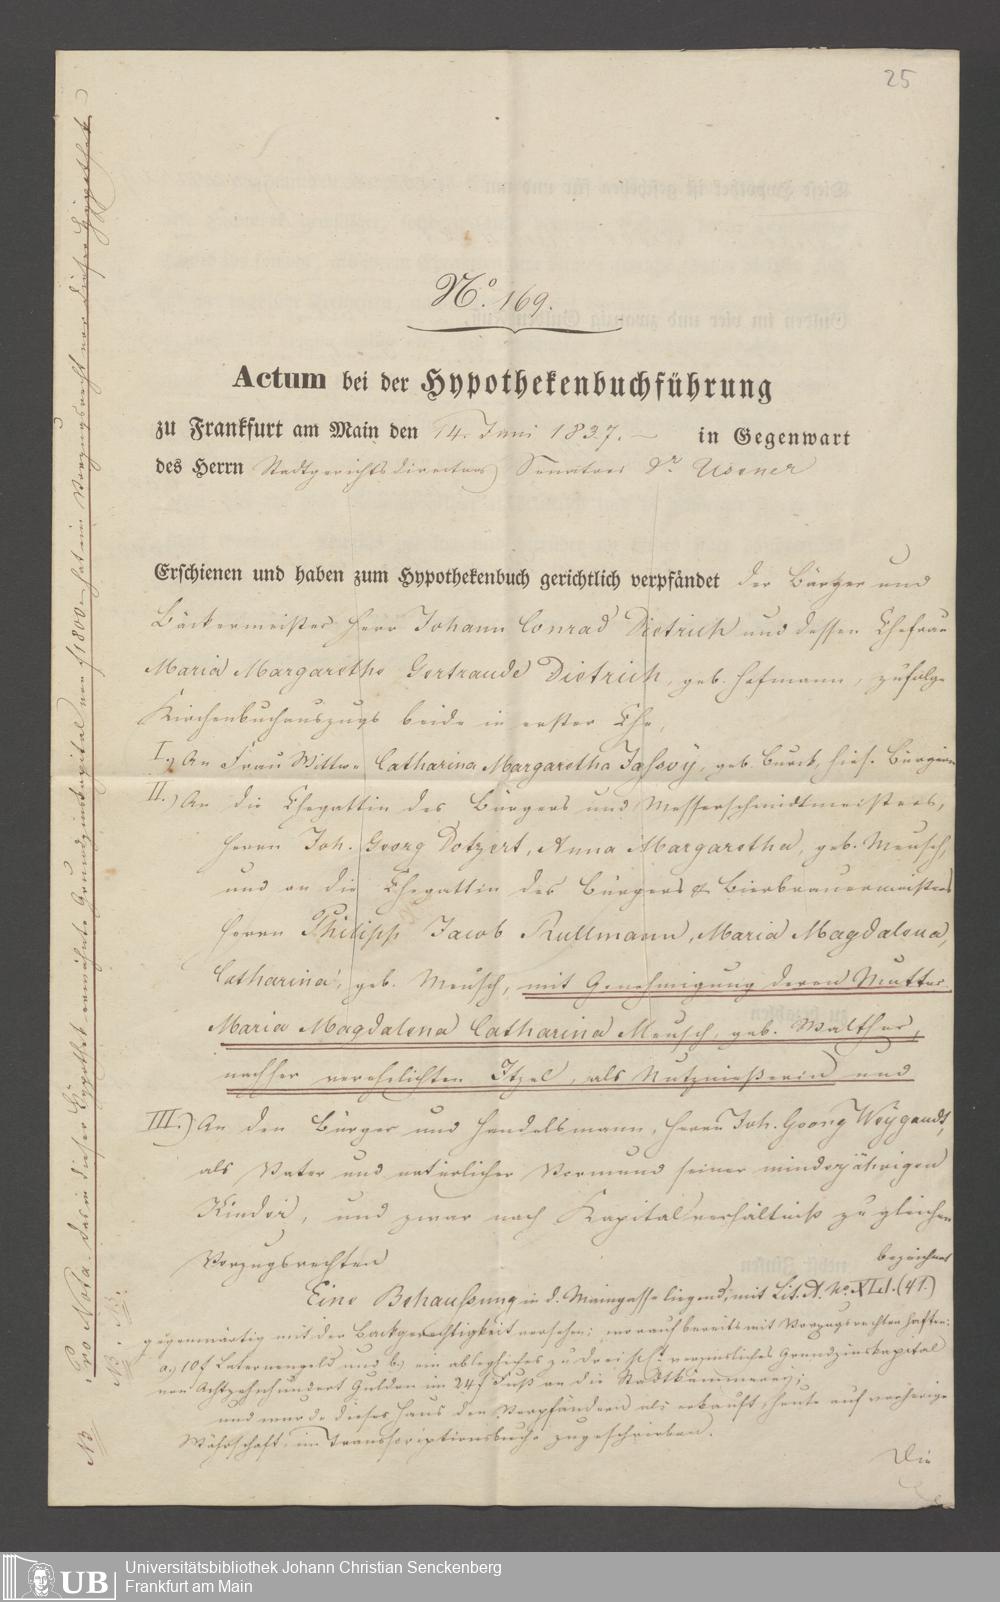 25
No. 169.
Actum bei der Hypothekenbuchführung
zu Frankfurt am Main den 14. Juni 1837. in Gegenwart
des Herrn Stadtgerichtsdirectors Senators Dr. Usener
Erschienen und haben zum Hypothekenbuch gerichtlich verpfändet der Bürger und
Bäckermeister Herr Johann Conrad Dietrich und dessen Ehefrau
Maria Margaretha Gertraude Dietrich, geb. Hofmann, zufolge
Kirchenbuchauszugs beide in erster Ehe,
I.) An Frau Wittwe Catharina Margaretha Jassoy, geb. Burck, hies. Bürgerin
II.) An die Ehegattin des Bürgers und Messerschmidtmeisters,
Herrn Joh. Georg Dotzert, Anna Margaretha, geb. Meusch,
und an die Ehegattin des Bürgers & Bierbrauermeisters
Herrn Philipp Jacob Rullmann, Maria Magdalena,
Catharina, geb. Meusch, mit Genehmigung deren Mutter
Maria Magdalena Catharina Meusch, geb. Walther,
nachher verehelichten Itzel, als Nutznießerin und
III.) An den Bürger und Handelsmann, Herrn Joh. Georg Weygandt,
als Vater und natürlicher Vormund seiner minderjährigen
Kinder, und zwar nach Kapitalverhältniß zu gleichen
Vorzugsrechten
bezeichnet
Eine Behaußung in d. Maingasse liegend, mit Lit. A. No. XLI. (41.)
gegenwärtig mit der Backgerechtigkeit versehen; worauf bereits mit Vorzugsrechten haften:
a.) 10 f Laternengeld und b.) ein ablegliches zu drei pCt. verzinsliches Grundzinskapital
von Achtzehnhundert Gulden im 24 f Fuß an die Stadtkämmerei;
und wurde dieses Haus den Verpfändern als erkauft, heute auf vorherige
Währschaft, im Transscriptionsbuche zugeschrieben.
Die
Pro Nota. das in dieser Hypothek erwähnte Grundzinskapital von f 1800. hat ein Vorzugsrecht vor dieser Hypothek
NB. NB.
NB
UB
Universitätsbibliothek Johann Christian Senckenberg
Frankfurt am Main